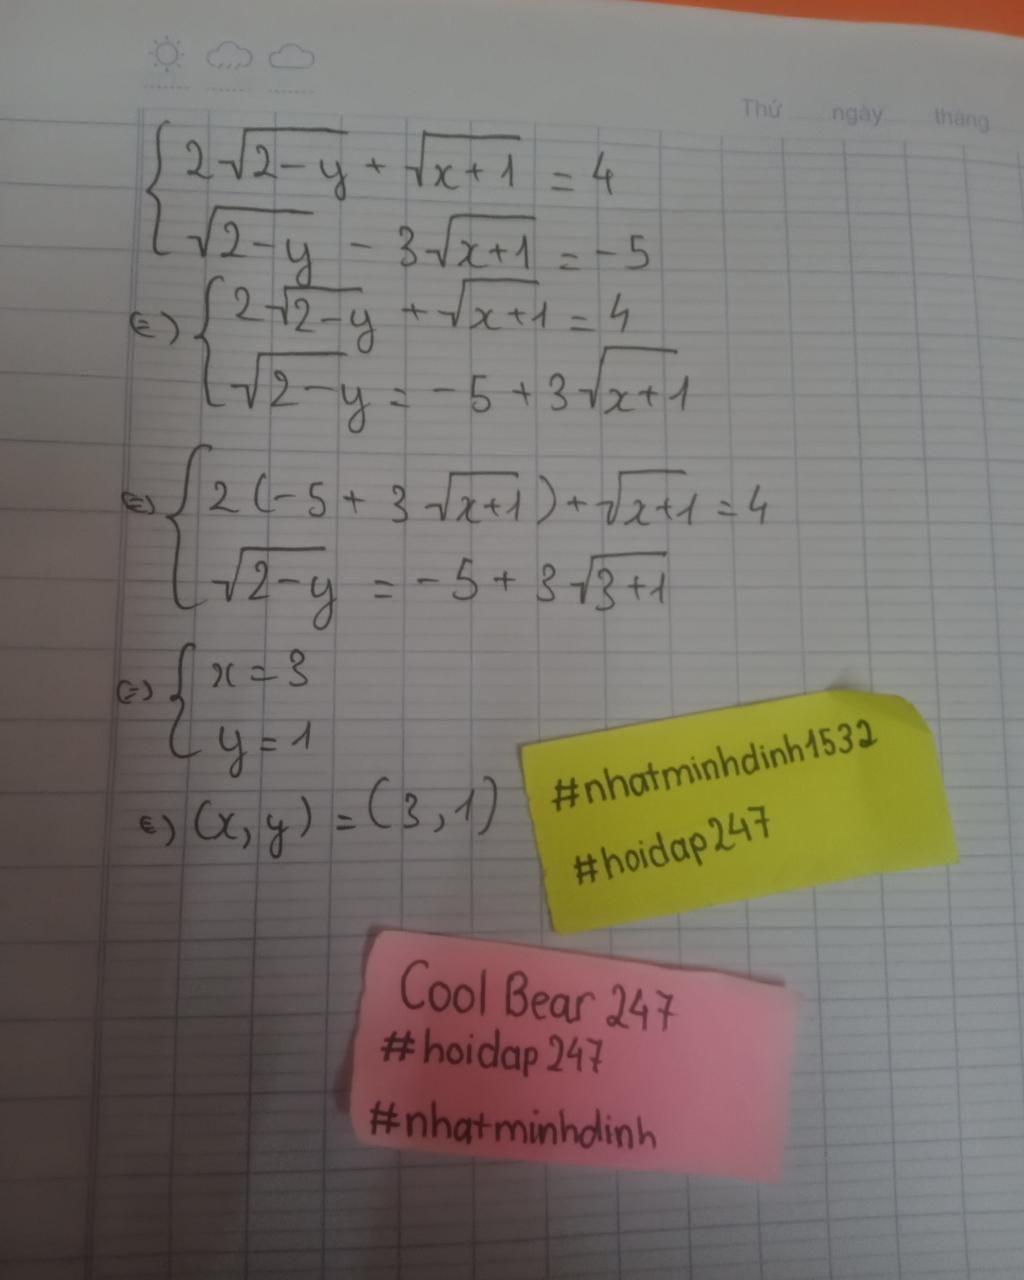 Thứ ngày tháng
{ 2√(2-y) + √(x+1) = 4
√(2-y) - 3√(x+1) = -5
(=) { 2√(2-y) + √(x+1) = 4
√(2-y) = -5 + 3√(x+1)
(=) { 2(-5 + 3√(x+1)) + √(x+1) = 4
√(2-y) = -5 + 3√(3+1)
(=) { x = 3
y = 1
(=) (x, y) = (3, 1)
#nhatminhdinh1532
#hoidap247
Cool Bear 247
#hoidap247
#nhatminhdinh